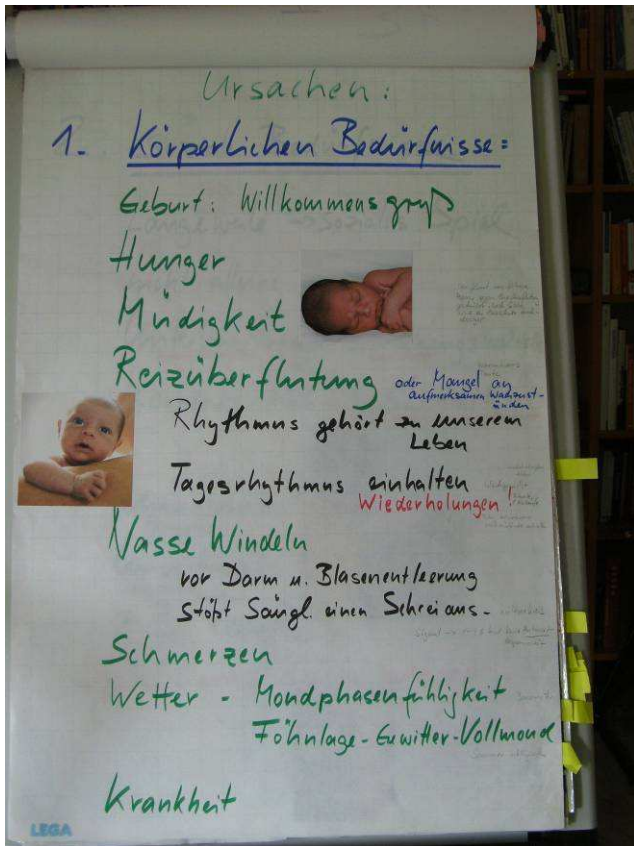 Ursachen:
1. Körperlichen Bedürfnisse:
Geburt: Willkommensgruß
Hunger
Müdigkeit
Reizüberflutung oder Mangel an
aufmerksamen Wachzust-
änden
Rhythmus gehört zu unserem
Leben
Tagesrhythmus einhalten
Wiederholungen!
Nasse Windeln
vor Darm u. Blasenentleerung
stößt Säugl. einen Schrei aus.
Schmerzen
Wetter - Mondphasenfühligkeit
Föhnlage - Gewitter - Vollmond
Krankheit
LEGA